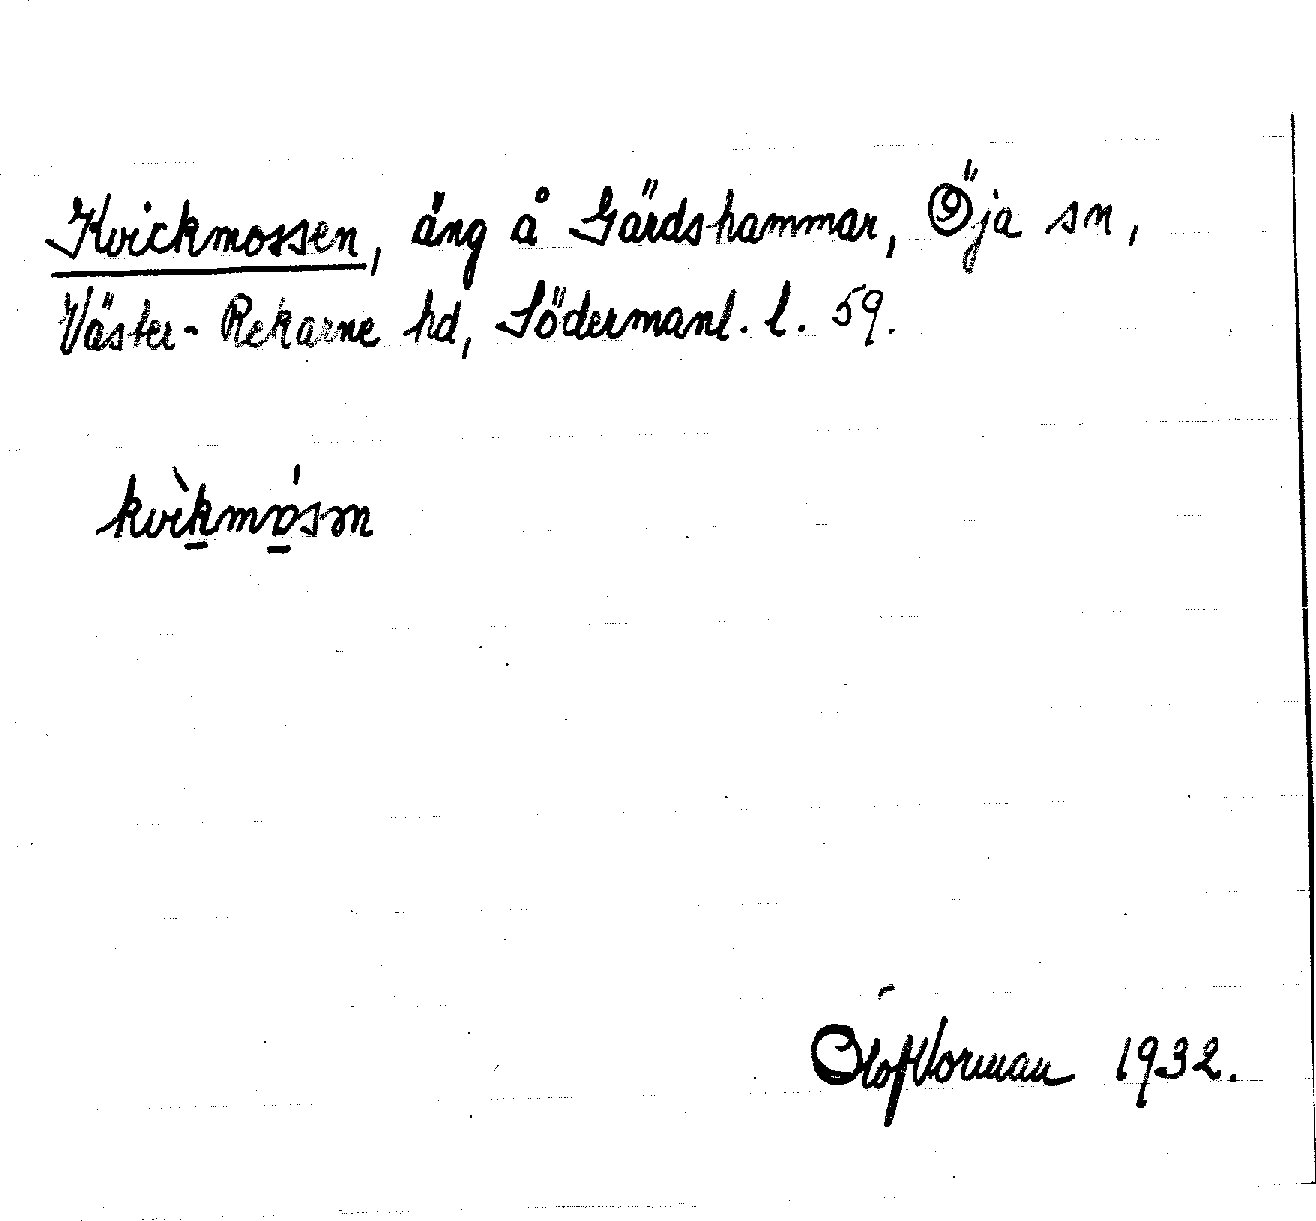 Kvickmossen, äng å Gärdshammar, Öja sn,
Väster-Rekarne hd, Södermanl. l. 59.
kvìkmósәn
Olof Norman 1932.